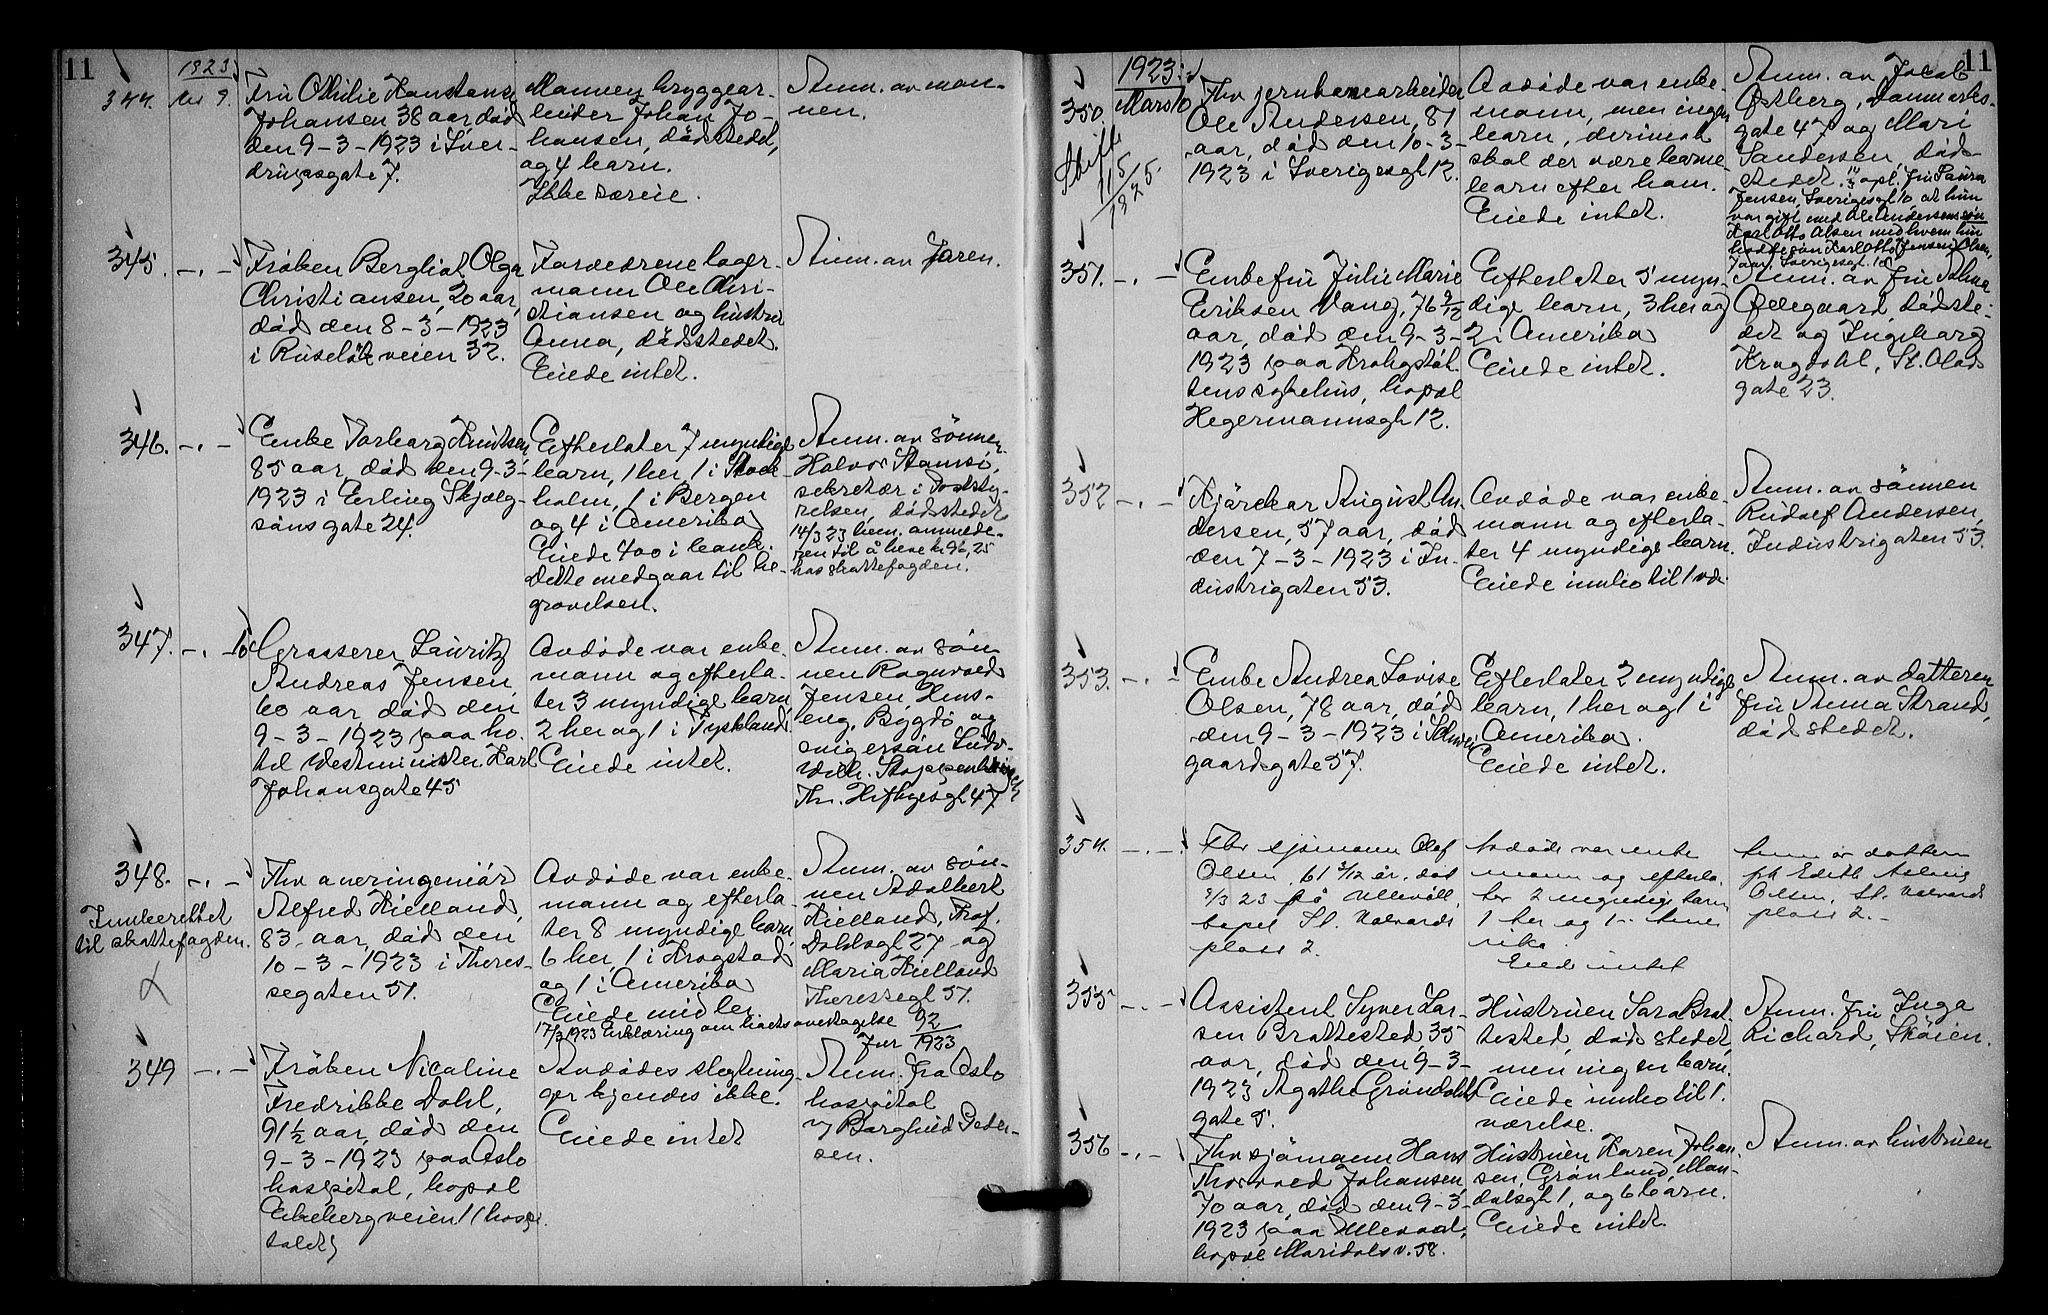 11
1923
344. Mrs 9. Fru Othilie Konstanse
Johansen 38 aar, død
den 9-3-1923 i Sver-
drupsgate 7.
Manden bryggear-
beider Johan Jo-
hansen, dødsstedet,
og 4 barn.
Ikke særeie.
Anm. av man-
nen.
345. -.- Frøken Bergliot Olga
Christiansen, 20 aar,
død den 8-3-1923
i Ruseløkveien 32.
Forældrene lager-
mann Ole Chri-
stiansen og hustru
Anna, dødsstedet.
Eiede intet.
Anm. av faren.
346. -.- Enke Torborg Knutsen,
85 aar, død den 9-3-
1923 i Erling Skjalg-
søns gate 24.
Efterlater 7 myndige
barn, 1 her, 1 i Stock
holm, 1 i Bergen
og 4 i Amerika
Eiede 400 i bank.
Dette medgaar til be-
gravelsen.
Anm. av sønnen
Halvor Stamsø,
sekretær i Poststy-
relsen, dødsstedet
14/3 23 bem. anmelde-
ren til å heve kr 96,25
hos skattefogden.
347. -.- 10 Grosserer Lauritz
Andreas Jensen,
60 aar, død den
9-3-1923 paa ho-
tel Westminister. Karl
Johansgate 45
Avdøde var enke-
mann og efterla-
ter 3 myndige barn,
2 her og 1 i Tyskland.
Eiede intet.
Anm. av søn
nen Ragnvald
Jensen, Hens-
eng, Bygdø og
svigersøn Ludv.
Wilh.
Th. Heftyesgt 47
348. -.- Fhv overingeniør
Alfred Kielland,
83 aar, død den
10-3-1923 i There-
segaten 51.
Innberettet
til skattefogden.
Avdøde var enke-
mann og efterla-
ter 8 myndige barn,
6 her, 1 i Krogstad
og 1 i Amerika
Eiede midler
17/3 1923 Erklæring om boets overtagelse 92
Jnr 1923
Anm. av søn-
nen Adalbert
Kielland, Prof.
Dahlsgt 27 og
Maria Kielland
Theresesgt 51.
349 -.- Frøken Nicoline
Fredrikke Dahl,
91½ aar, død den
9-3-1923 paa Oslo
hospital, bopæl
Ekebergveien 1 (hospi-
talet)
Avdødes slegtnin-
ger kjendes ikke.
Eiede intet
Anm. fra Oslo
hospital
v/ Borghild Peder-
sen.
11
1923:
350. Mars 10 Fhv jernbanearbeider
Ole Andersen, 81
aar, død den 10-3-
1923 i Sverigesgt 12.
Skifte
11/5
1925.
Avdøde var enke-
mann, men ingen
barn, derimot
skal der være barne
barn efter ham.
Eiede intet.
Anm. av Jacob
Østberg, Danmarks-
gate 47 og Mari
Sandersen, død-
stedet. opl. fru Laura
Jensen, Sverigesgt 10, at hun
var gift med Ole Andersens søn
Karl Otto Olsen med hvem hun
hadde søn Karl Otto Jensen Olsen,
7 aar, Sverigesgt. 10
351. -.- Enkefru Julie Marie
Eriksen Vang, 76 9/12
aar, død den 9-3-
1923 paa Krohgstøt-
tens sykehus, bopæl
Hegermannsgt 12.
Efterlater 5 myn-
dige barn, 3 her og
2 i Amerika
Eiede intet.
Anm. av fru
Ødegaard, dødsste-
det og Ingeborg
Krogdahl, St. Olavs
gate 23.
352 -.- Kjørekar August An-
dersen, 57 aar, død
den 7-3-1923 i In-
dustrigaten 53.
Avdøde var enke-
mann og efterla-
ter 4 myndige barn.
Eiede innbo til 1 vær.
Anm. av sønnen
Rudolf Andersen,
Industrigaten 53.
353. -.- Enke Andrea Lovise
Olsen, 78 aar, død
den 9-3-1923 i Schwei
gaardsgate 57.
Efterlater 2 myndige
barn, 1 her og 1 i
Amerika.
Eiede intet.
Anm. av datteren
fru Anna Strand,
dødsstedet.
354. -.- Fhv sjømann Olaf
Olsen, 61 3/12 år, død
9/3 23 på Ullevål,
bopæl St. Halvards
plass 2.
Avdøde var enke
mann og efterla.
ter 2 myndige barn,
1 her og 1 i Ame
rika.
Eied intet
Anm av datteren
frk Edith Aslaug
Olsen, St. Halvards
plass 2.-
355 -.- Assistent Syver Lar-
sen Brattested, 35
aar, død den 9-3-
1923 Agathe Grøndahls
gate 5.
Hustruen Sara Brat-
tested, dødsstedet,
men ingen barn.
Eiede innbo til 1.
værelse.
Anm. fru Inga
Richard, Skøien.
356 -.- Fhv sjømann Hans
Thorvald Johansen,
70 aar, død den 9-3-
1923 paa Ullevaal,
bopæl Maridalsv. 58.
Hustruen Karen Johan-
sen, Grønland, Man-
dalsgt 1, og 6 barn.
Eiede intet.
Anm. av hustruen